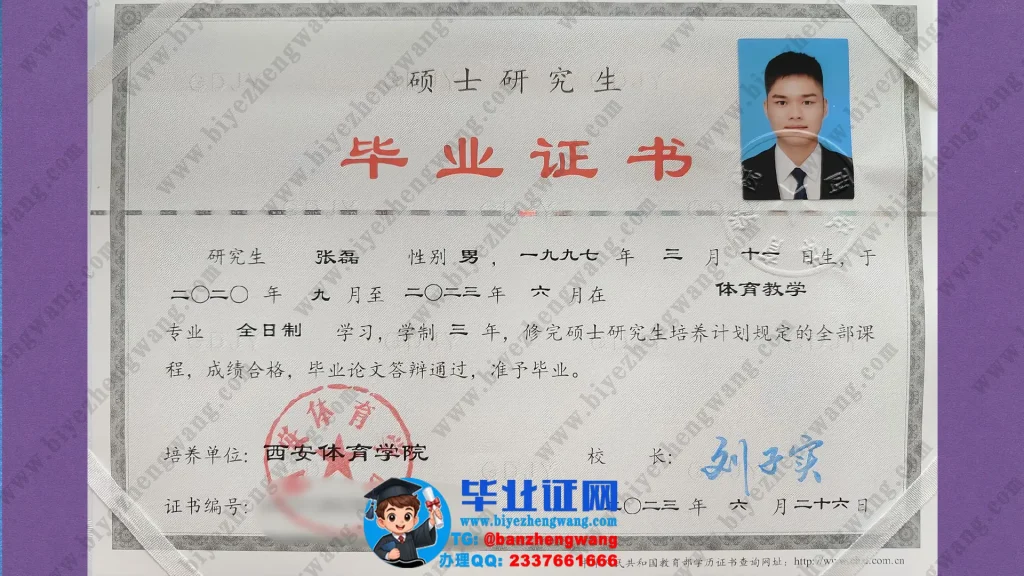 硕士研究生
毕业证书
研究生 张磊 性别 男，一九九七 年 三 月 十一 日生，于
二〇二〇 年 九 月至 二〇二三 年 六 月在 体育教学
专业 全日制 学习，学制 三 年，修完硕士研究生培养计划规定的全部课
程，成绩合格，毕业论文答辩通过，准予毕业。
培养单位：西安体育学院
校 长：刘子实
证书编号：
〇二三 年 六 月二十六日
毕业证网
www.biyezhengwang.com
TG: @banzhengwang
办理QQ: 2337661666
人民共和国教育部学历证书查询网址：http://www.chsi.com.cn
www.biyezhengwang.com